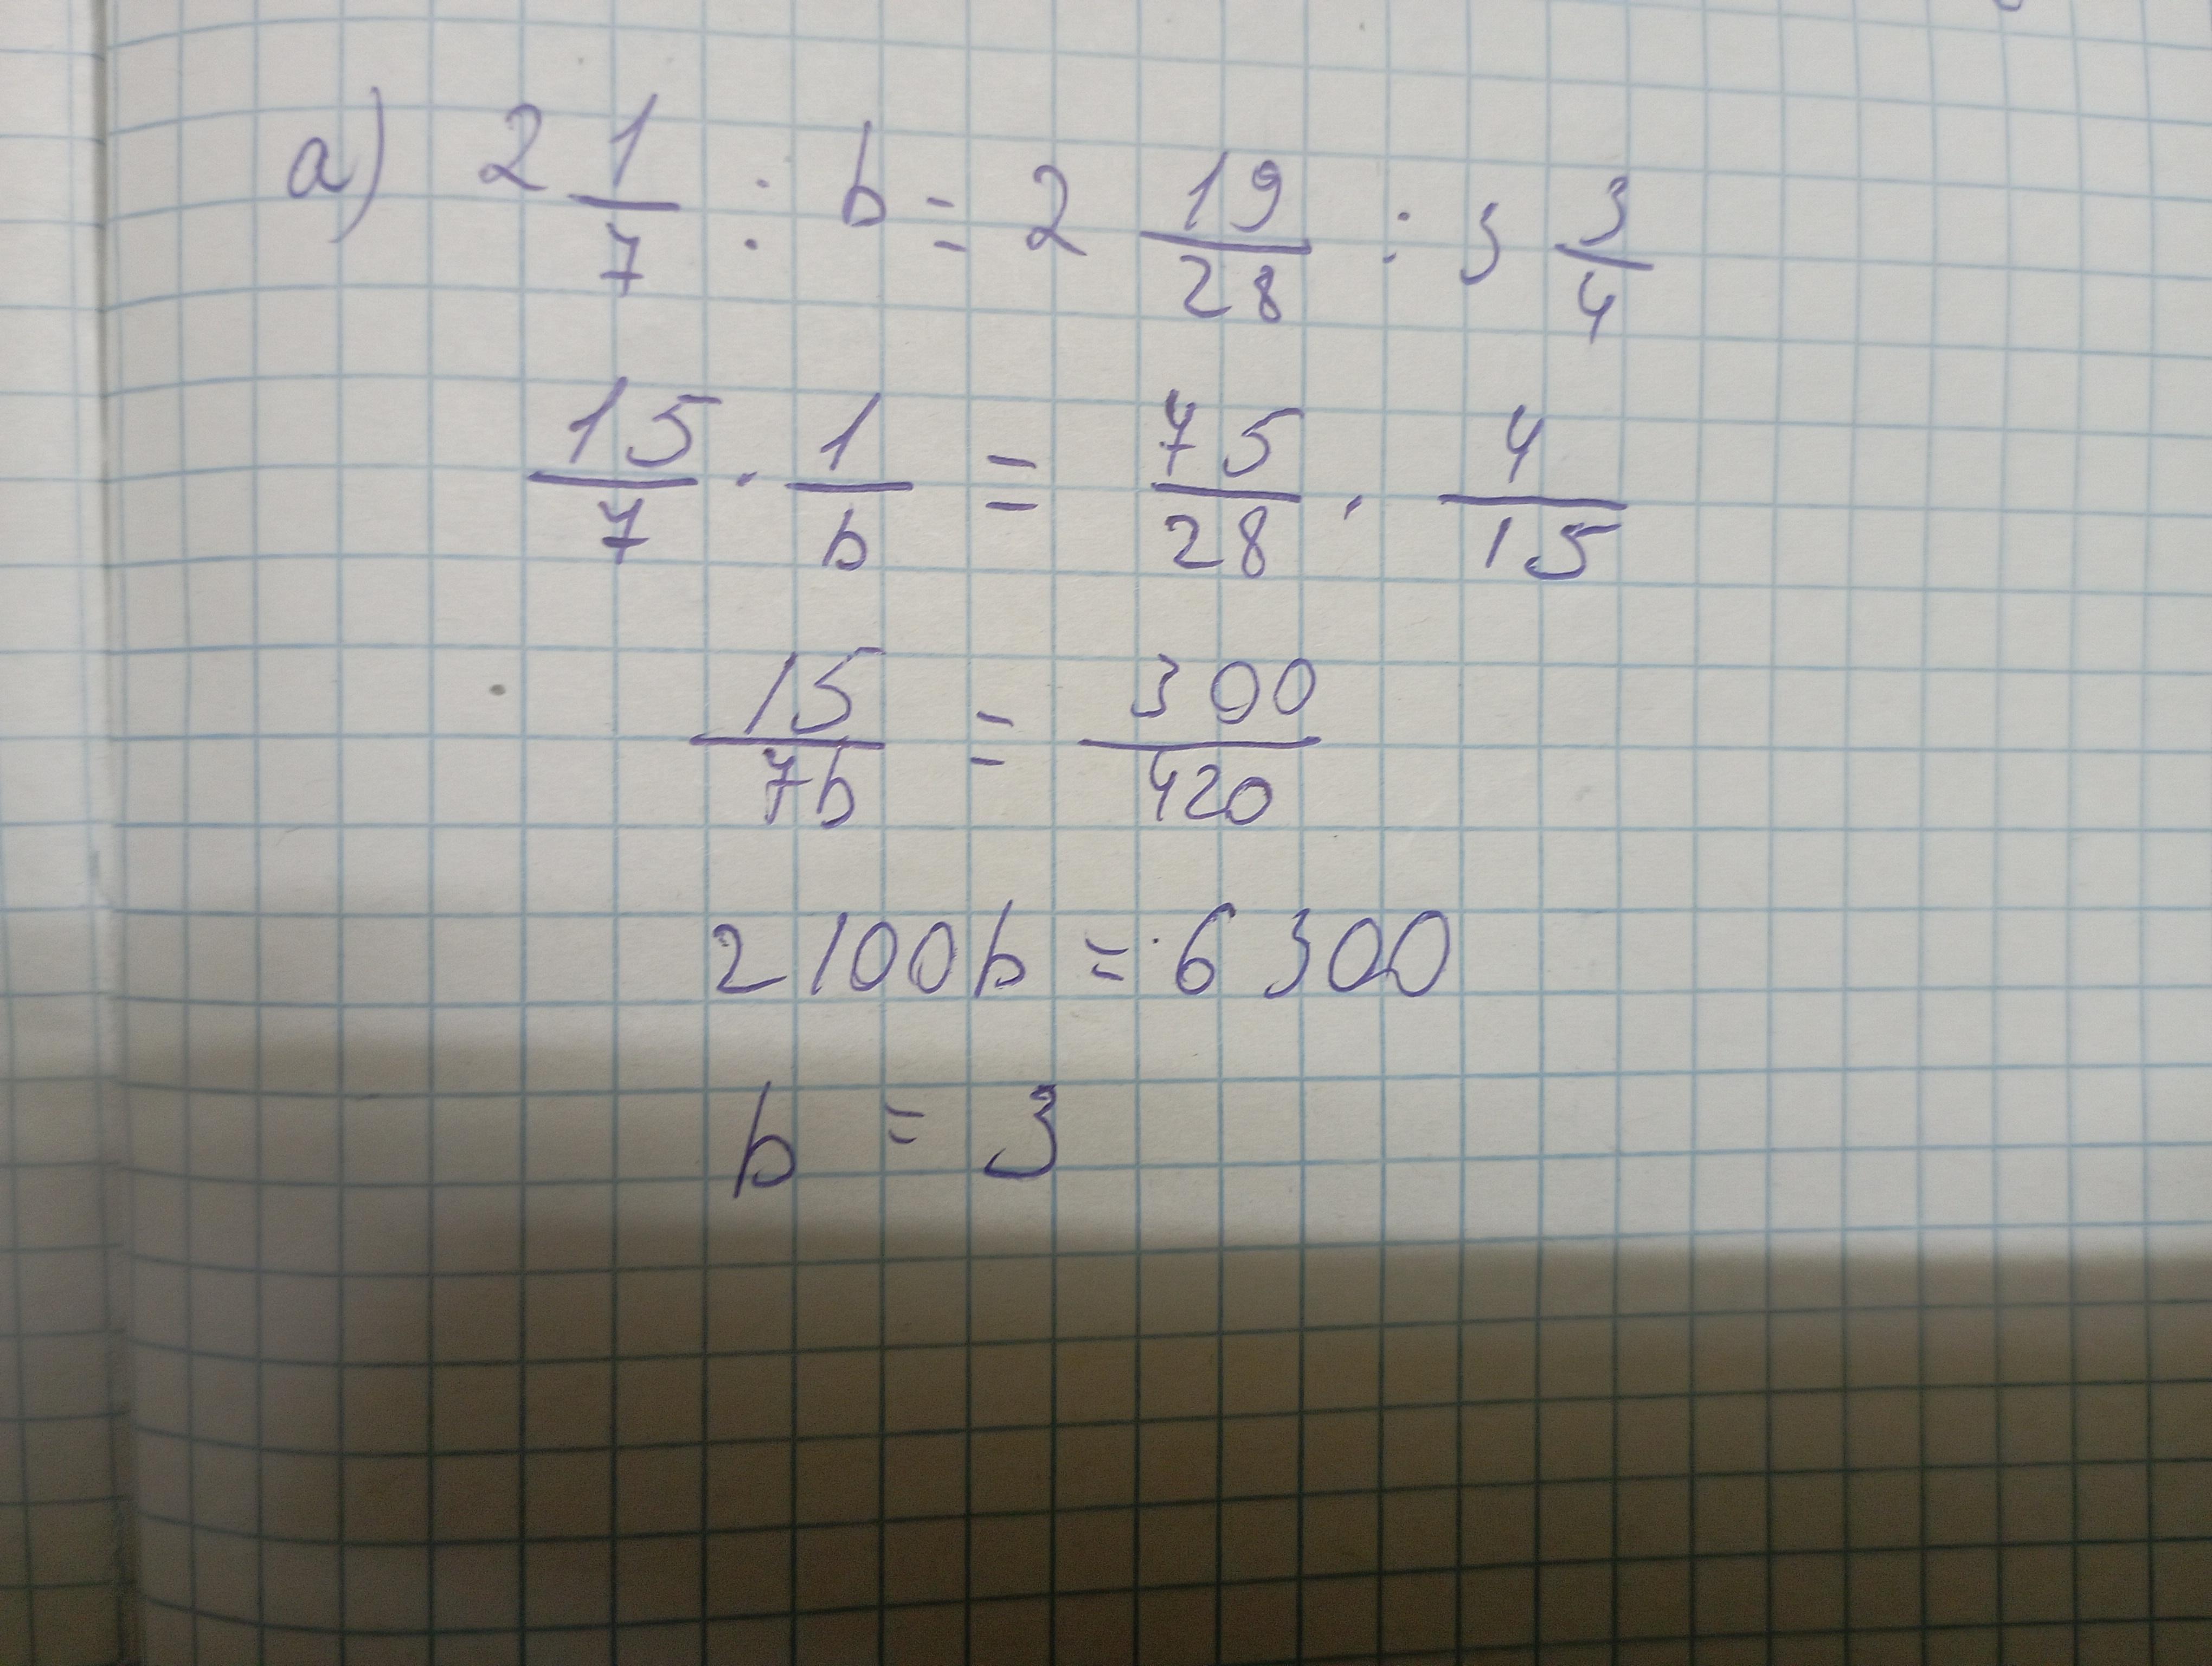 а) 2 1/7 : b = 2 19/28 : 3 3/4
15/7 · 1/b = 75/28 · 4/15
15/7b = 300/420
2100b = 6300
b = 3